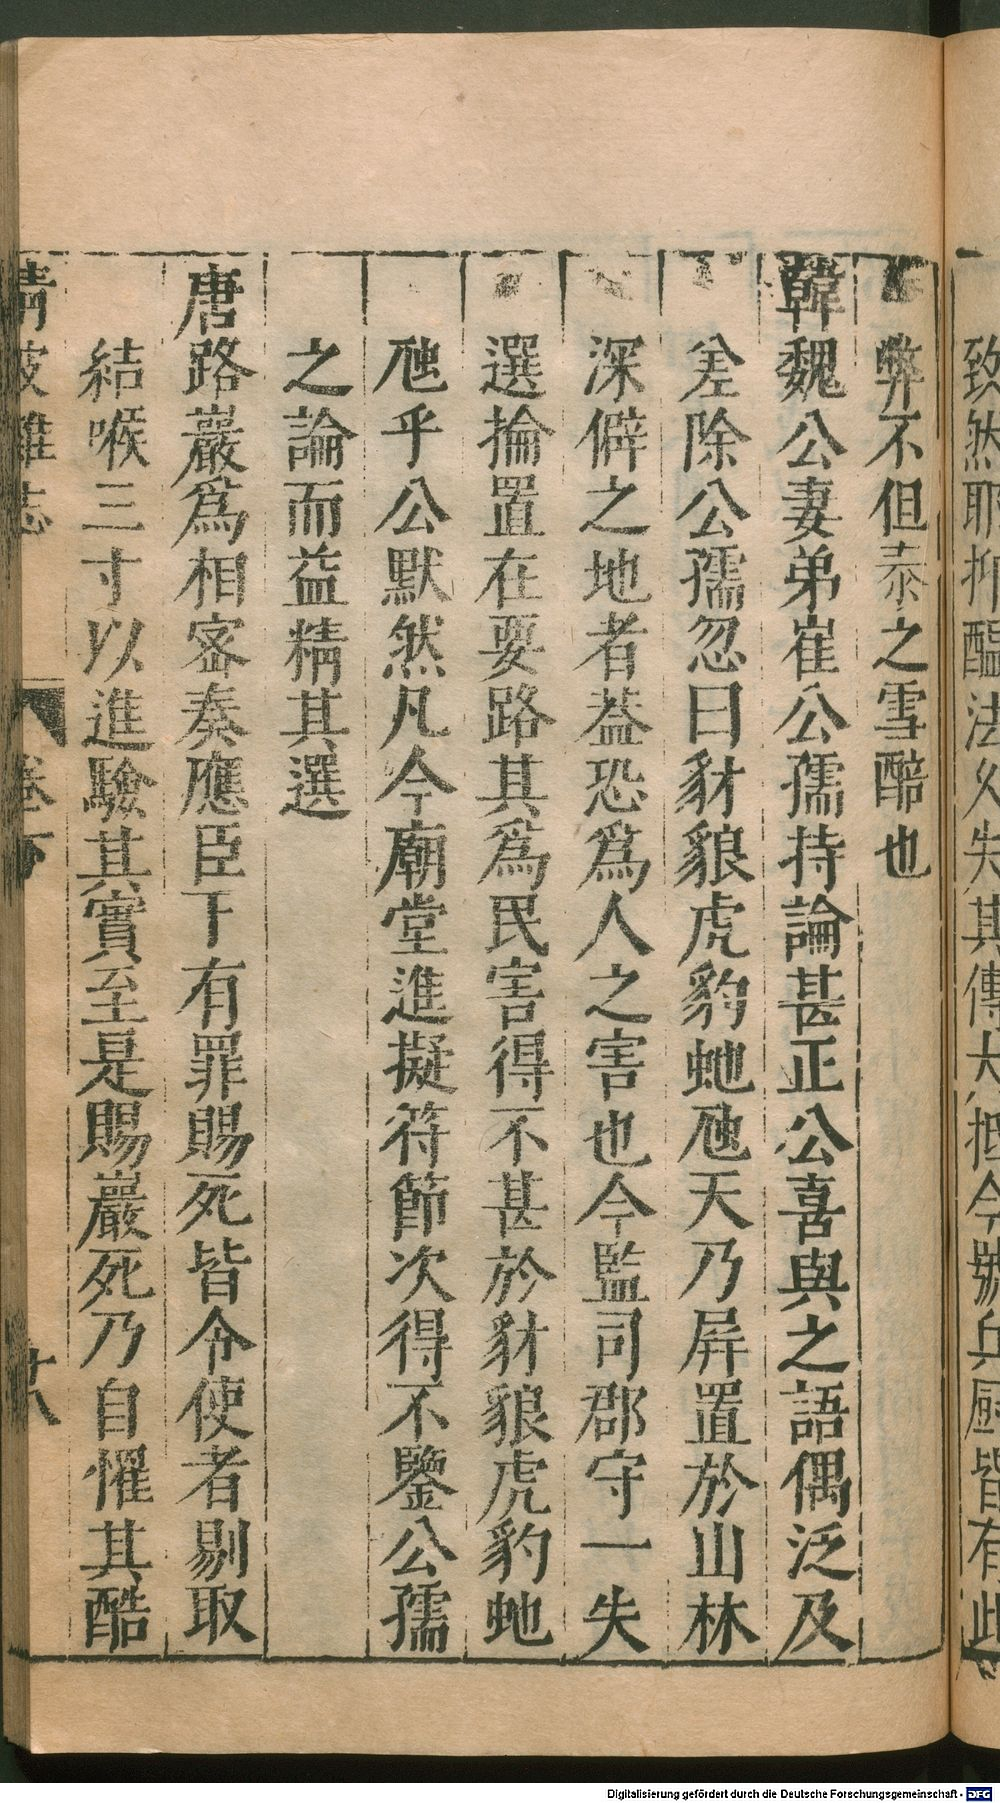 致然耶抑醞法久失其傳大抵今號兵厨皆有此
弊不但泰之雪醅也
韓魏公妻弟崔公孺持論甚正公喜與之語偶泛及
差除公孺忽曰豺狼虎豹虵虺天乃屏置於山林
深僻之地者葢恐為人之害也今監司郡守一失
選掄置在要路其為民害得不甚於豺狼虎豹虵
虺乎公默然凡今廟堂進擬符節次得不鑒公孺
之論而益精其選
唐路巖為相密奏應臣下有罪賜死皆令使者剔取
結喉三寸以進驗其實至是賜巖死乃自懼其酷
清波雜志 卷下 廿八
Digitalisierung gefördert durch die Deutsche Forschungsgemeinschaft - DFG